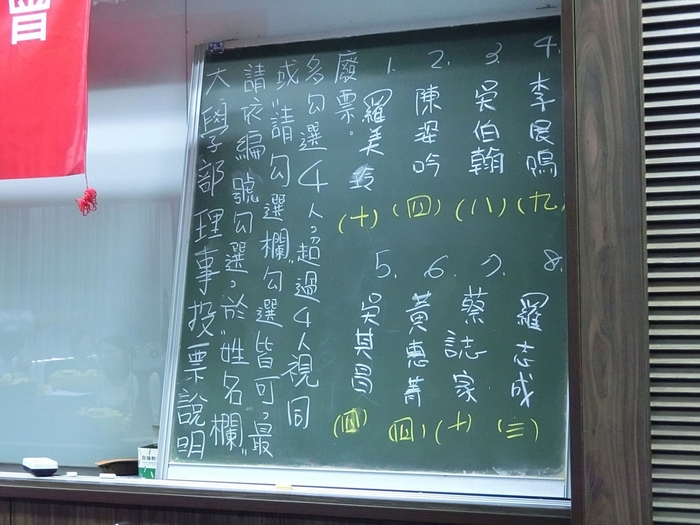 大學部理事投票說明
請依編號勾選,於"姓名欄"
或"請勾選欄"勾選皆可,最
多勾選4人,超過4人視同
廢票。
1. 羅美玲 (十)
2. 陳姿吟 (四)
3. 吳伯翰 (八)
4. 李展鳴 (九)
5. 吳其昌 (四)
6. 黃惠菁 (四)
7. 蔡誌家 (十)
8. 羅志成 (三)